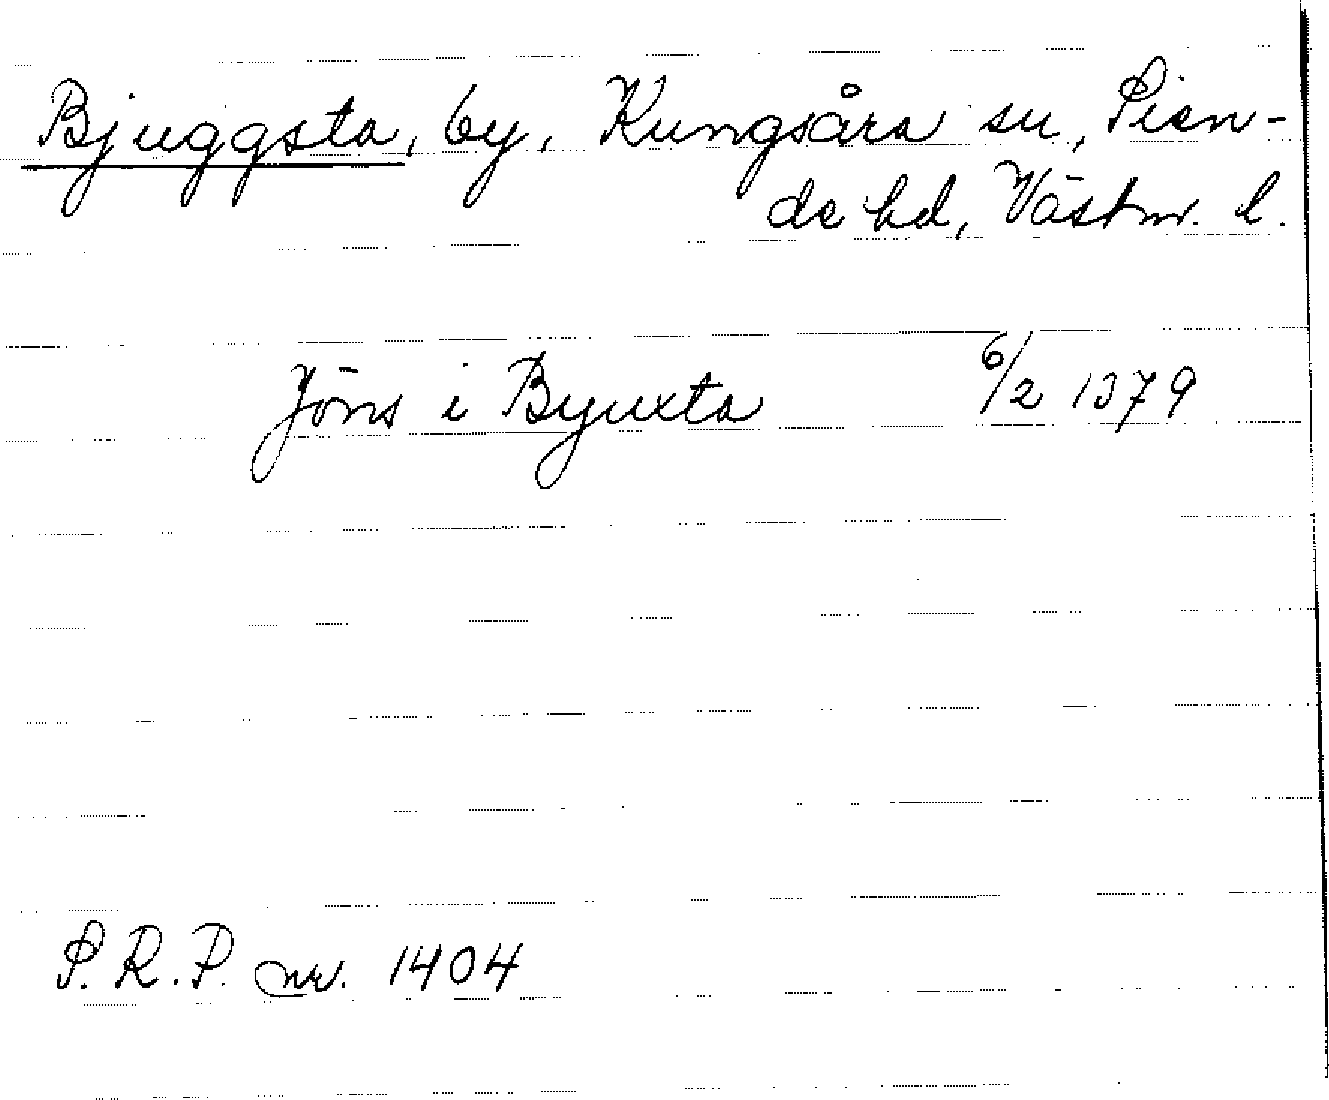 Bjuggsta, by, Kungsåra sn, Sien-
de hd, Västm. l.
Jöns i Byuxta 6/2 1379
S. R. P. nr. 1404